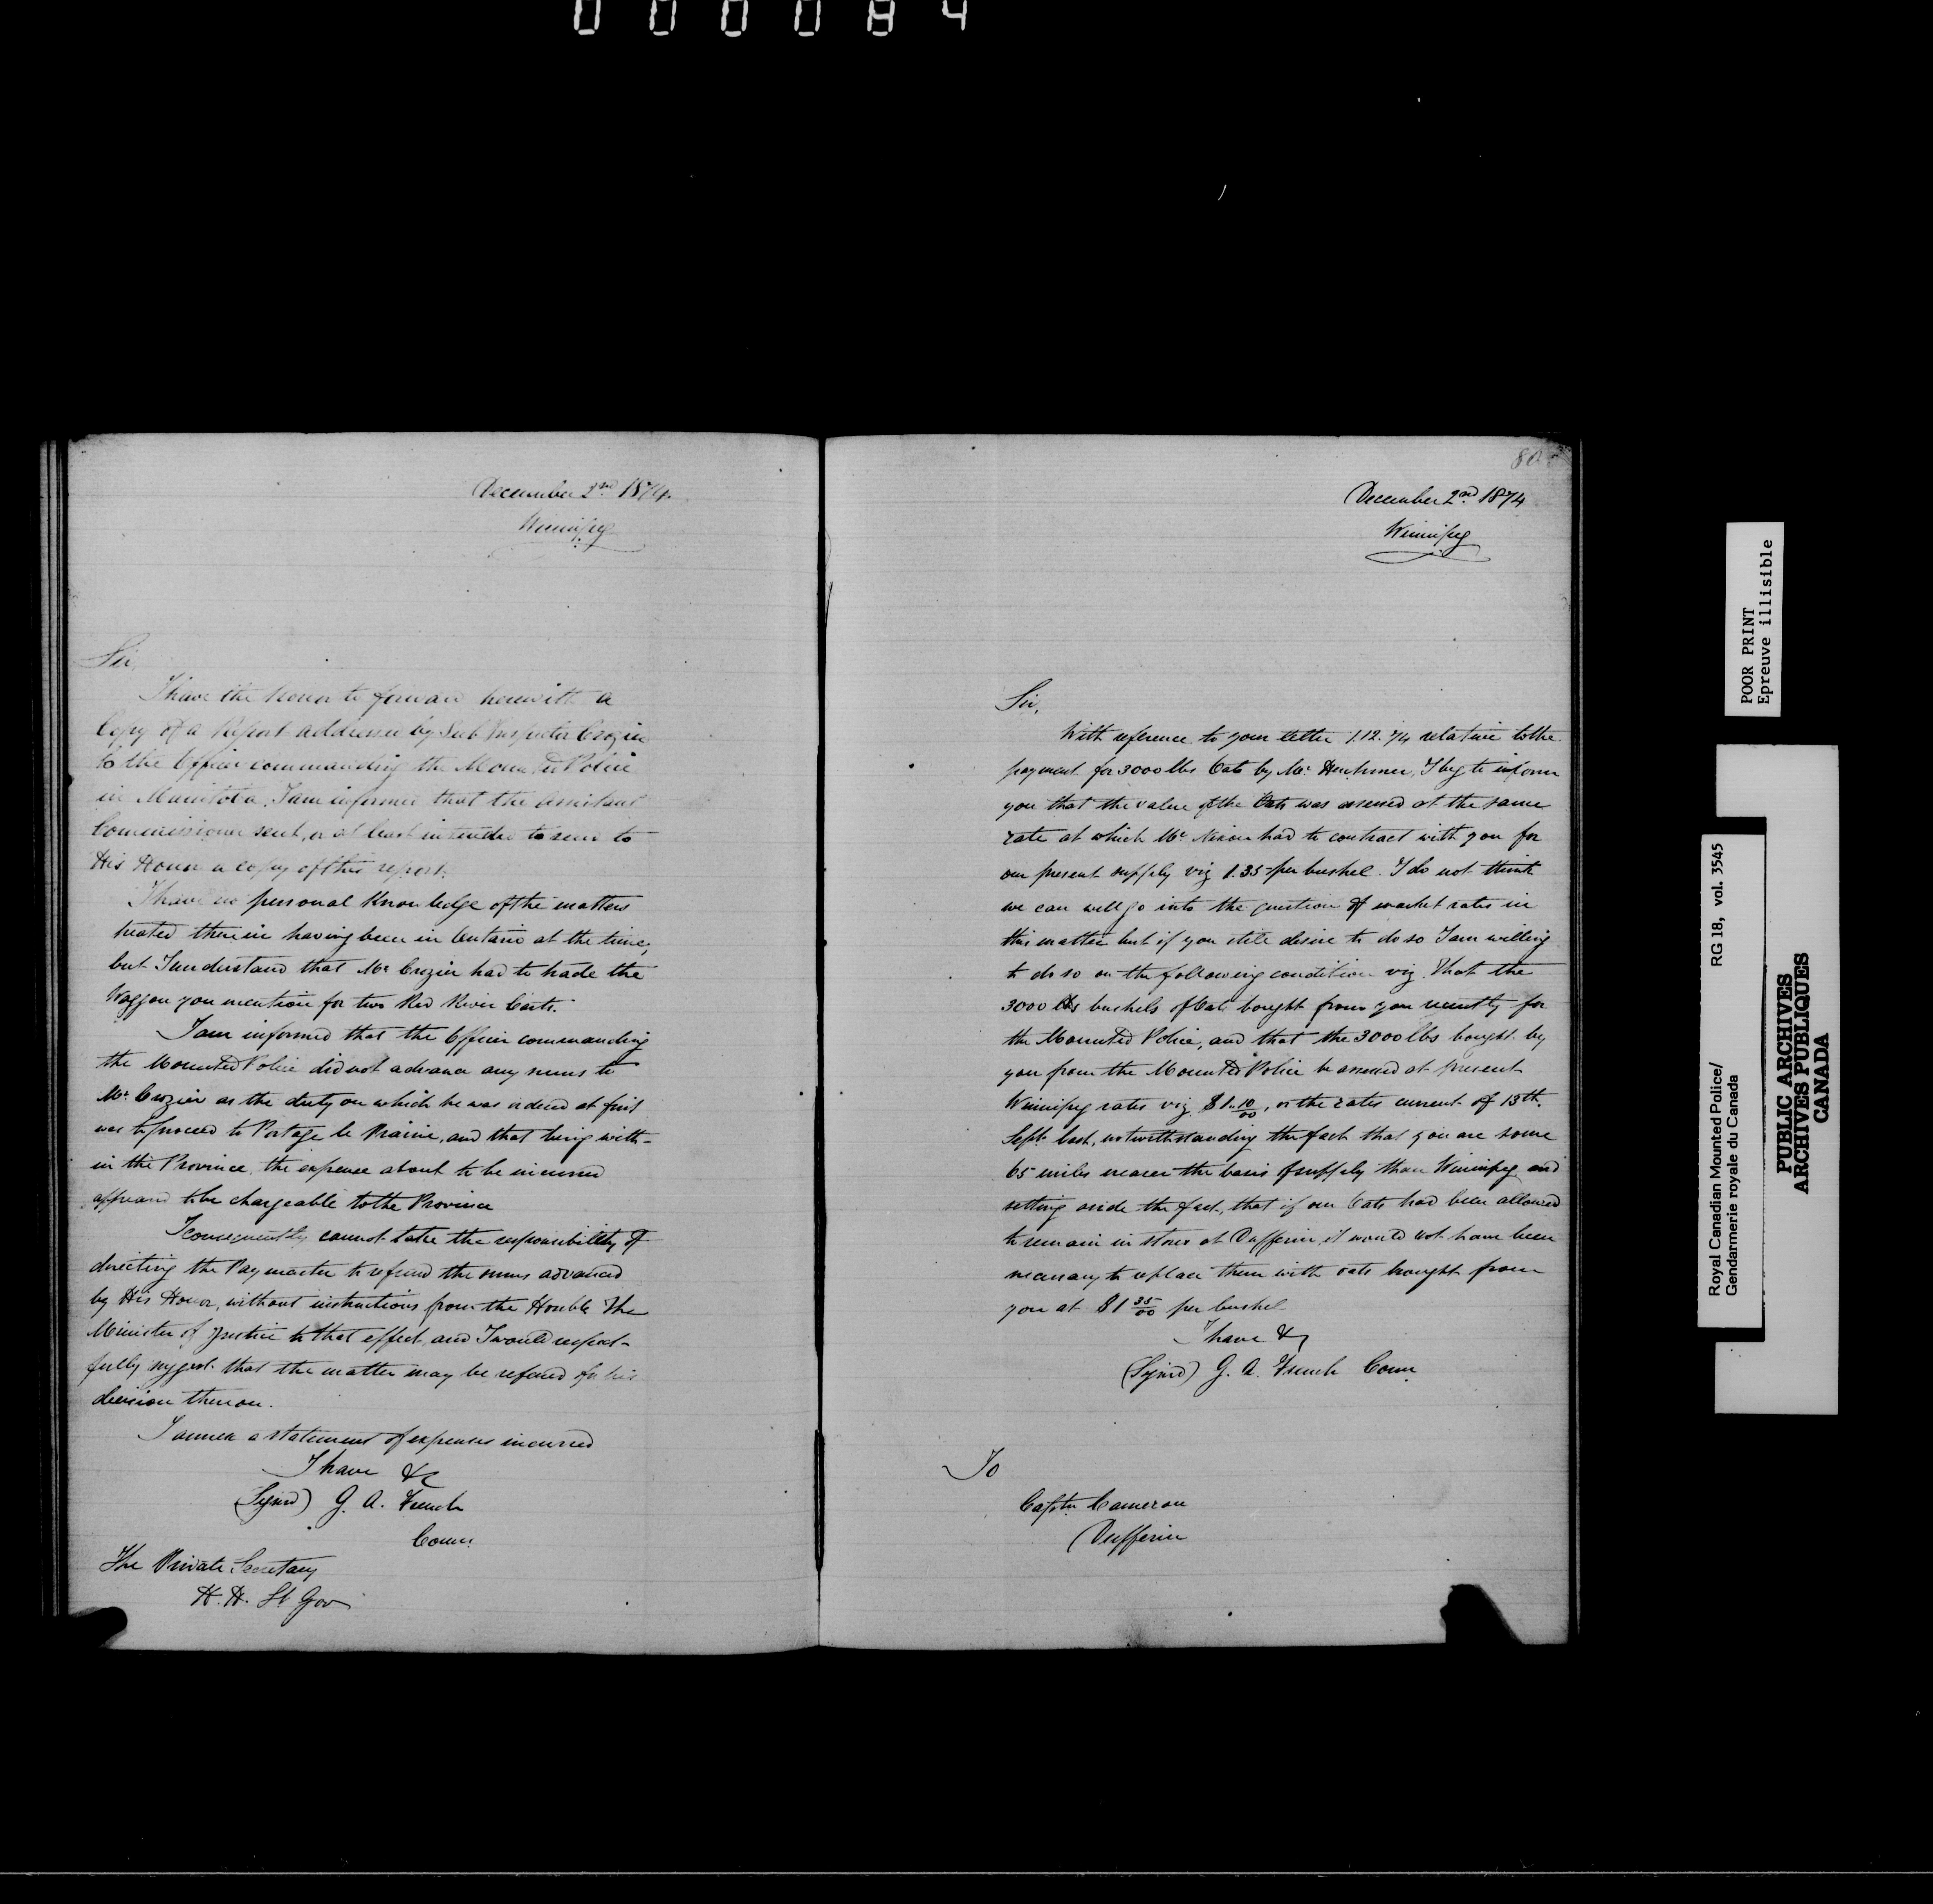 000084
December 2nd 1874
Winnipeg
Sir,
I have the honor to forward herewith a
Copy of a Report addressed by Sub Inspector Crozier
to the Officer commanding the Mounted Police
in Manitoba. I am informed that the Assistant
Commissioner sent, or at least intended to send to
His Honor a copy of this report.
I have no personal knowledge of the matters
treated therein having been in Ontario at the time,
but I understand that Mr Crozier had to trade the
Waggon you mention for two Red River Carts.
I am informed that the Officer commanding
the Mounted Police did not advance any sums to
Mr Crozier as the duty on which he was ordered at first
was to proceed to Portage le Prairie, and that being with-
in the Province, the expense about to be incurred
appeared to be chargeable to the Province
I consequently cannot take the responsibility of
directing the Paymaster to refund the sums advanced
by His Honor, without instructions from the Honble The
Minister of Justice to that effect, and I would respect-
fully suggest that the matter may be refered for his
decision thereon.
I annex a statement of expenses incurred
I have &c
(Signed) G. A. French
Comr.
The Private Secretary
H. H. Lt Gov
80
December 2nd 1874
Winnipeg
Sir,
With reference to your letter 1.12.74 relative to the
payment for 3000 lbs Oats by Mr. Herchmer, I beg to inform
you that the value of the Oats was assessed at the same
rate at which Mr. Nixon had to contract with you for
our present supply viz 1.35 per bushel. I do not think
we can well go into the question of market rates in
this matter but if you still desire to do so I am willing
to do so on the following condition viz. That the
3000 bushels of Oats bought from you recently for
the Mounted Police, and that the 3000 lbs bought by
you from the Mounted Police be assessed at present
Winnipeg rates viz $1..10/00, or the rates current of 13th.
Sept. last, notwithstanding the fact that you are some
65 miles nearer the basis of supply than Winnipeg and
setting aside the fact, that if our Oats had been allowed
to remain in stores at Dufferin it would not have been
necessary to replace them with oats bought from
you at $1 35/00 per bushel
I have &c
(Signed) G. A. French Comr.
To
Captn. Cameron
Dufferin
POOR PRINT
Epreuve illisible
Royal Canadian Mounted Police/ RG 18, vol. 3545
Gendarmerie royale du Canada
PUBLIC ARCHIVES
ARCHIVES PUBLIQUES
CANADA